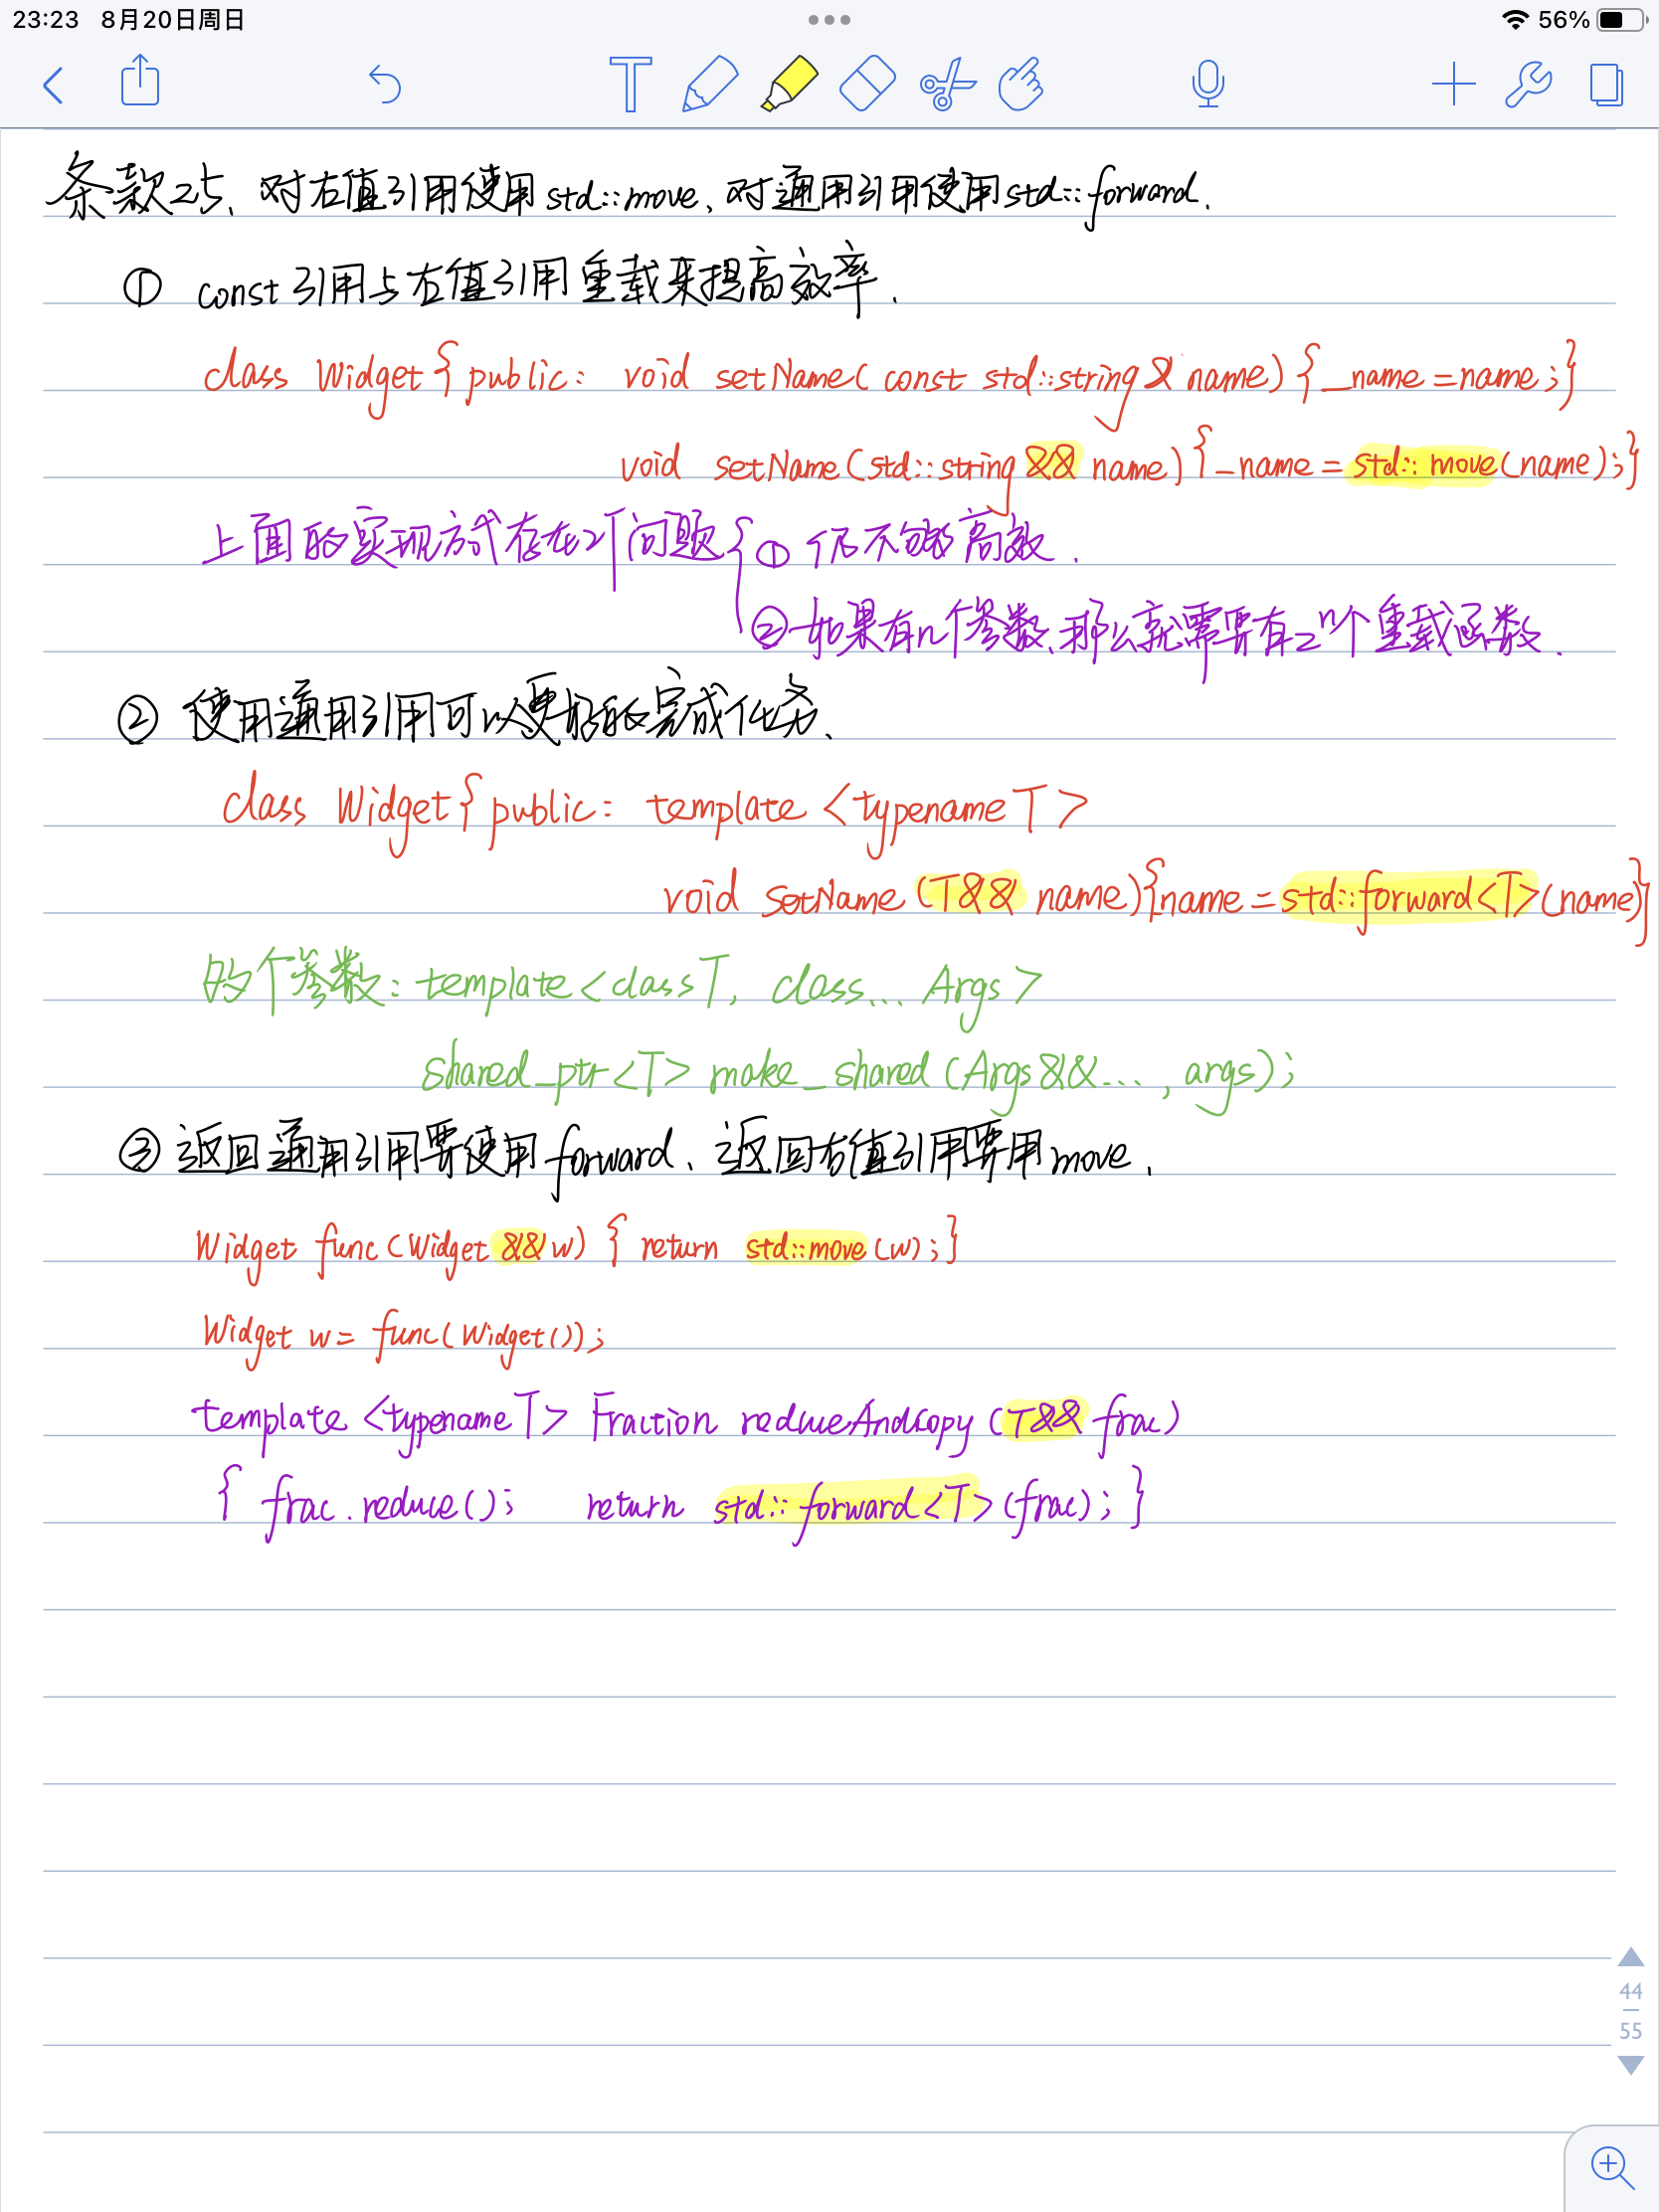 23:23 8月20日周日
56%
条款25、对右值引用使用std::move、对通用引用使用std::forward.
① const引用与右值引用重载来提高效率.
class Widget{public: void setName(const std::string& name){_name=name;}
void setName(std::string&& name){_name=std::move(name);}
上面的实现方式存在2个问题{①仍不够高效.
②如果有n个参数、那么就需要有2ⁿ个重载函数.
② 使用通用引用可以更好的完成任务、
class Widget{public: template<typename T>
void setName(T&& name){name=std::forward<T>(name}
多个参数: template<class T, class... Args>
shared_ptr<T> make_shared(Args&&..., args);
③ 返回通用引用要使用forward、返回右值引用要用move.
Widget func(Widget&& w){ return std::move(w);}
Widget w= func(Widget());
template<typename T> Fraction reduceAndCopy(T&& frac)
{ frac.reduce(); return std::forward<T>(frac);}
44
55